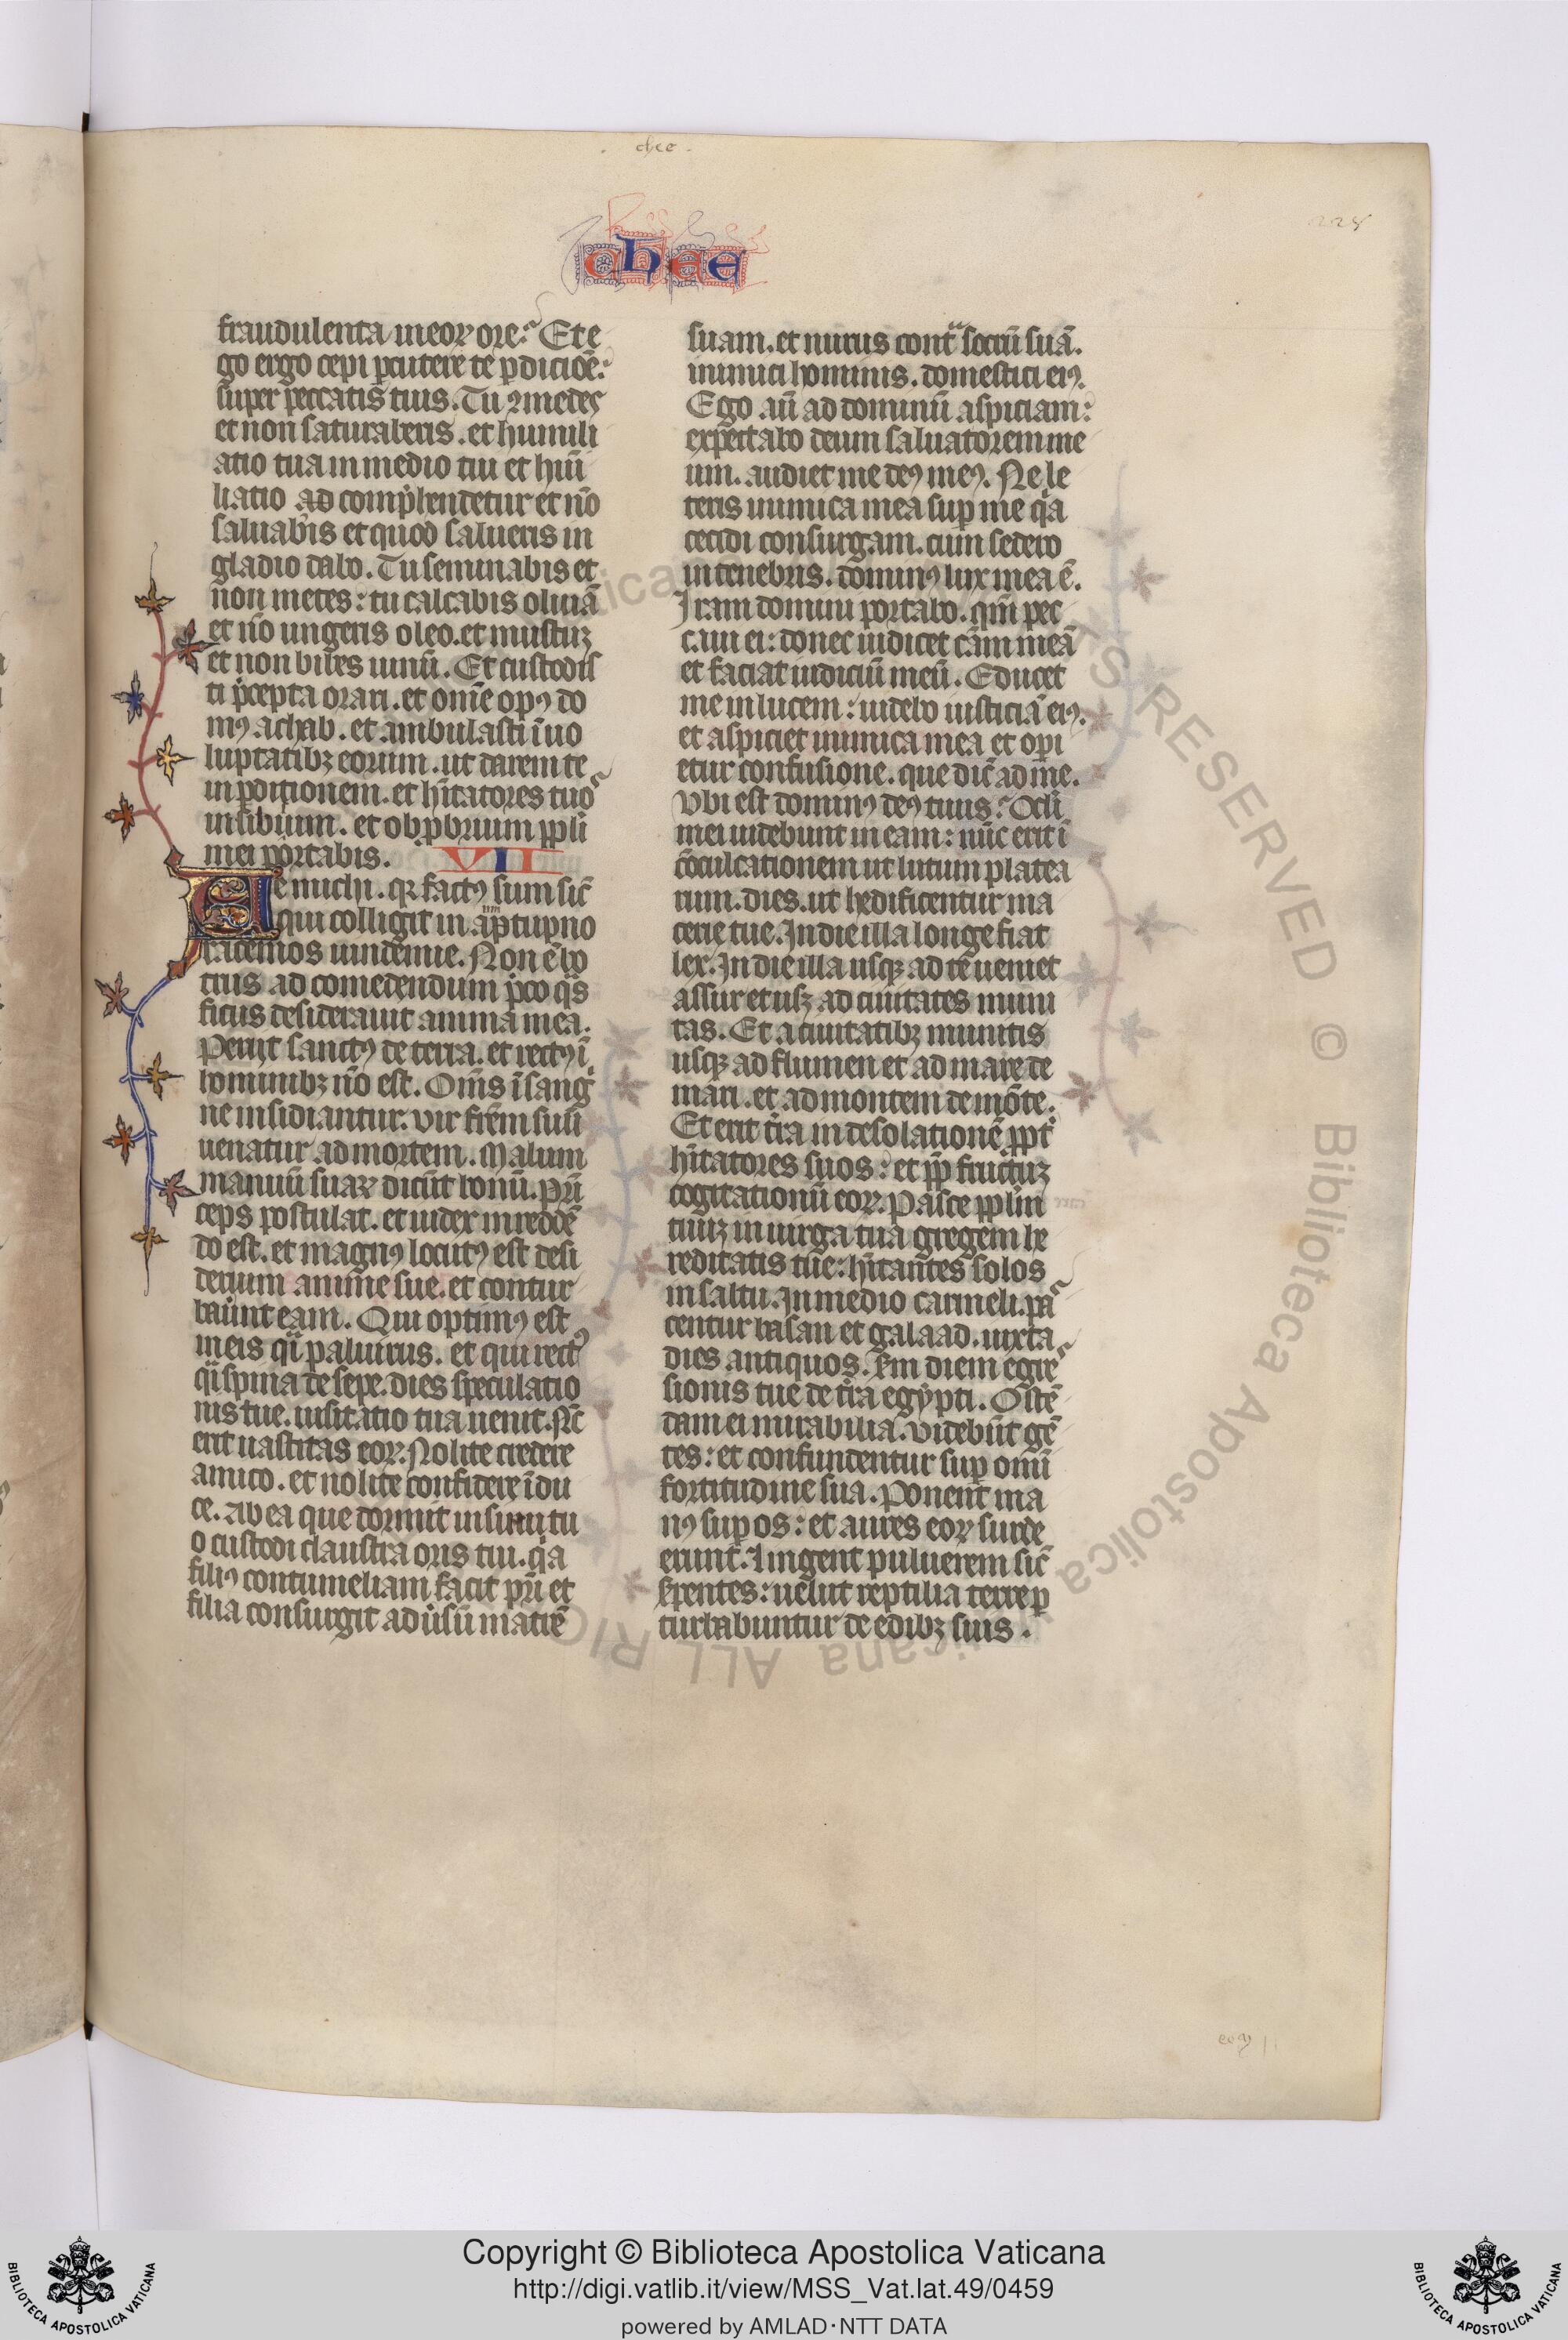 . chee .
chee
228
fraudulenta in eoꝝ ore? Et e
go ergo cepi ꝑcutere te ꝑdicioē:
super peccatis tuis. Tu ꝯmedes
et non saturaberis. et humili
atio tua in medio tui et hūi
liatio ad cōprhendetur et nō
saluabis et quod salueris in
gladio dabo. Tu seminabis et
non metes: tu calcabis oliuā
et nō ungeris oleo. et mustuꝫ
et non bibes uinū. Et custodis
ti p̄cepta omri. et om̄e opꝰ do
mꝰ achab. et ambulasti ī uo
luptatibꝫ eorum. ut darem te
in ꝑditionem. et hītatores tuos
in sibilum. et obprbrium ppli
mei portabis. VII
Ue michi. qꝛ factꝰ sum sic̄
qui colligit in aūptūpno
racemos uindemie. Non ē bo
trus ad comedendum p̄co q̄s
ficus desiderauit anima mea.
Perijt sanctꝰ de terra. et rectꝰ ī
hominibꝫ nō est. Om̄s ī sangͥ
ne insidiantur. vir frēm suū
uenatur ad mortem. Malum
manuū suaꝝ dicūt bonū. prī
ceps postulat. et iudex in reddē
do est. et magnꝰ locutꝰ est desi
derium anime sue. et contur
baūunt eam. Qui optimꝰ est
in eis qͣi paliurus. et qui rectꝰ
qͣi spina de sepe. dies speculatio
nis tue. uisitatio tua uenit. Nc̄
erit uastitas eoꝝ. Nolite credere
amico. et nolite confidere ī du
ce. Ab ea que dormit in sinu tu
o custodi claustra oris tui. qͥa
filiꝰ contumeliam facit pr̄i et
filia consurgit aduīsū matrē
suam. et nurus contͣ socrū suā.
inimici hominis. domestici eiꝰ.
Ego aū ad dominū aspiciam:
expectabo deum saluatorem me
um. audiet me deꝰ meꝰ. Ne le
teris inimica mea suꝑ me qͥa
cecidi consurgam. cum sedero
in tenebris. dominꝰ lux mea ē.
Iram domini portabo. qm̄ pec
caui ei: donec iudicet cām meā
et faciat iudiciū meū. Educet
me in lucem: uidebo iusticiā eiꝰ.
et aspiciet inimica mea et oꝑi
etur confusione. que dic̄ ad me.
Vbi est dominꝰ deꝰ tuus? Ocli
mei uidebunt in eam: nūc erit ī
cōculcationem ut lutum platea
rum. dies. ut hedificentur ma
cerie tue. In die illa longe fiat
lex. In die illa usqꝫ ad te ueniet
assur et usqꝫ ad ciuitates muni
tas. Et a ciuitatibꝫ munitis
usqꝫ ad flumen et ad mare de
mari. et ad montem de mōte.
Et erit tr̄a in desolationē ppt̄
hītatores suos: et pp̄ fructuꝫ
cogitationū eoꝝ. Pasce pplm̄
tuuꝫ in uirga tua gregem he
reditatis tue: hītantes solos
in saltu. In medio carmeli. pas
centur basan et galaad. iuxta
dies antiquos. Scꝺm diem egres
sionis tue de tr̄a egypti. Ostē
dam ei mirabilia. Videbūt gē
tes: et confundentur suꝑ omī
fortitudine sua. Ponent ma
nꝰ suꝑ os: et aures eoꝝ surde
erunt. Lingent puluerem sic̄
serpentes: uelut reptilia terre ꝑ
turbabuntur de edibꝫ suis.
© Biblioteca Apostolica Vaticana ALL RIGHTS RESERVED
Copyright © Biblioteca Apostolica Vaticana
http://digi.vatlib.it/view/MSS_Vat.lat.49/0459
powered by AMLAD·NTT DATA
BIBLIOTECA APOSTOLICA VATICANA
BIBLIOTECA APOSTOLICA VATICANA